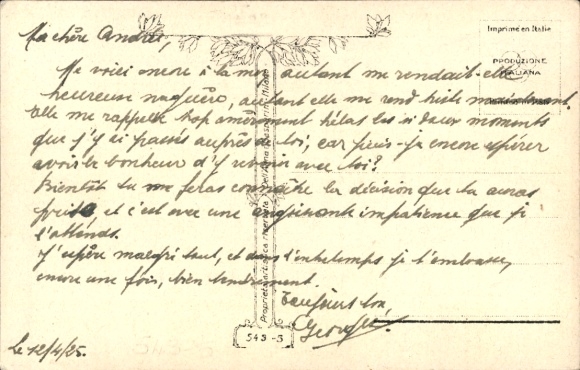 Ma chère Andrée,
Me voici encore à la mer, autant me rendait-elle
heureuse naguère, autant elle me rend triste maintenant.
Elle me rappelle trop amèrement hélas les si doux moments
que j'y ai passés auprès de toi, car puis-je encore espérer
avoir le bonheur d'y revenir avec toi?
Bientôt tu me feras connaître la décision que tu auras
prise, et c'est avec une angoissante impatience que je
l'attends.
J'espère malgré tout, et dans l'entretemps je t'embrasse,
encore une fois, bien tendrement.
Toujours ton,
Georges
Le 12/4/25.
Imprimé en Italie
PRODUZIONE
ITALIANA
Proprietà artistica riservata
543-3